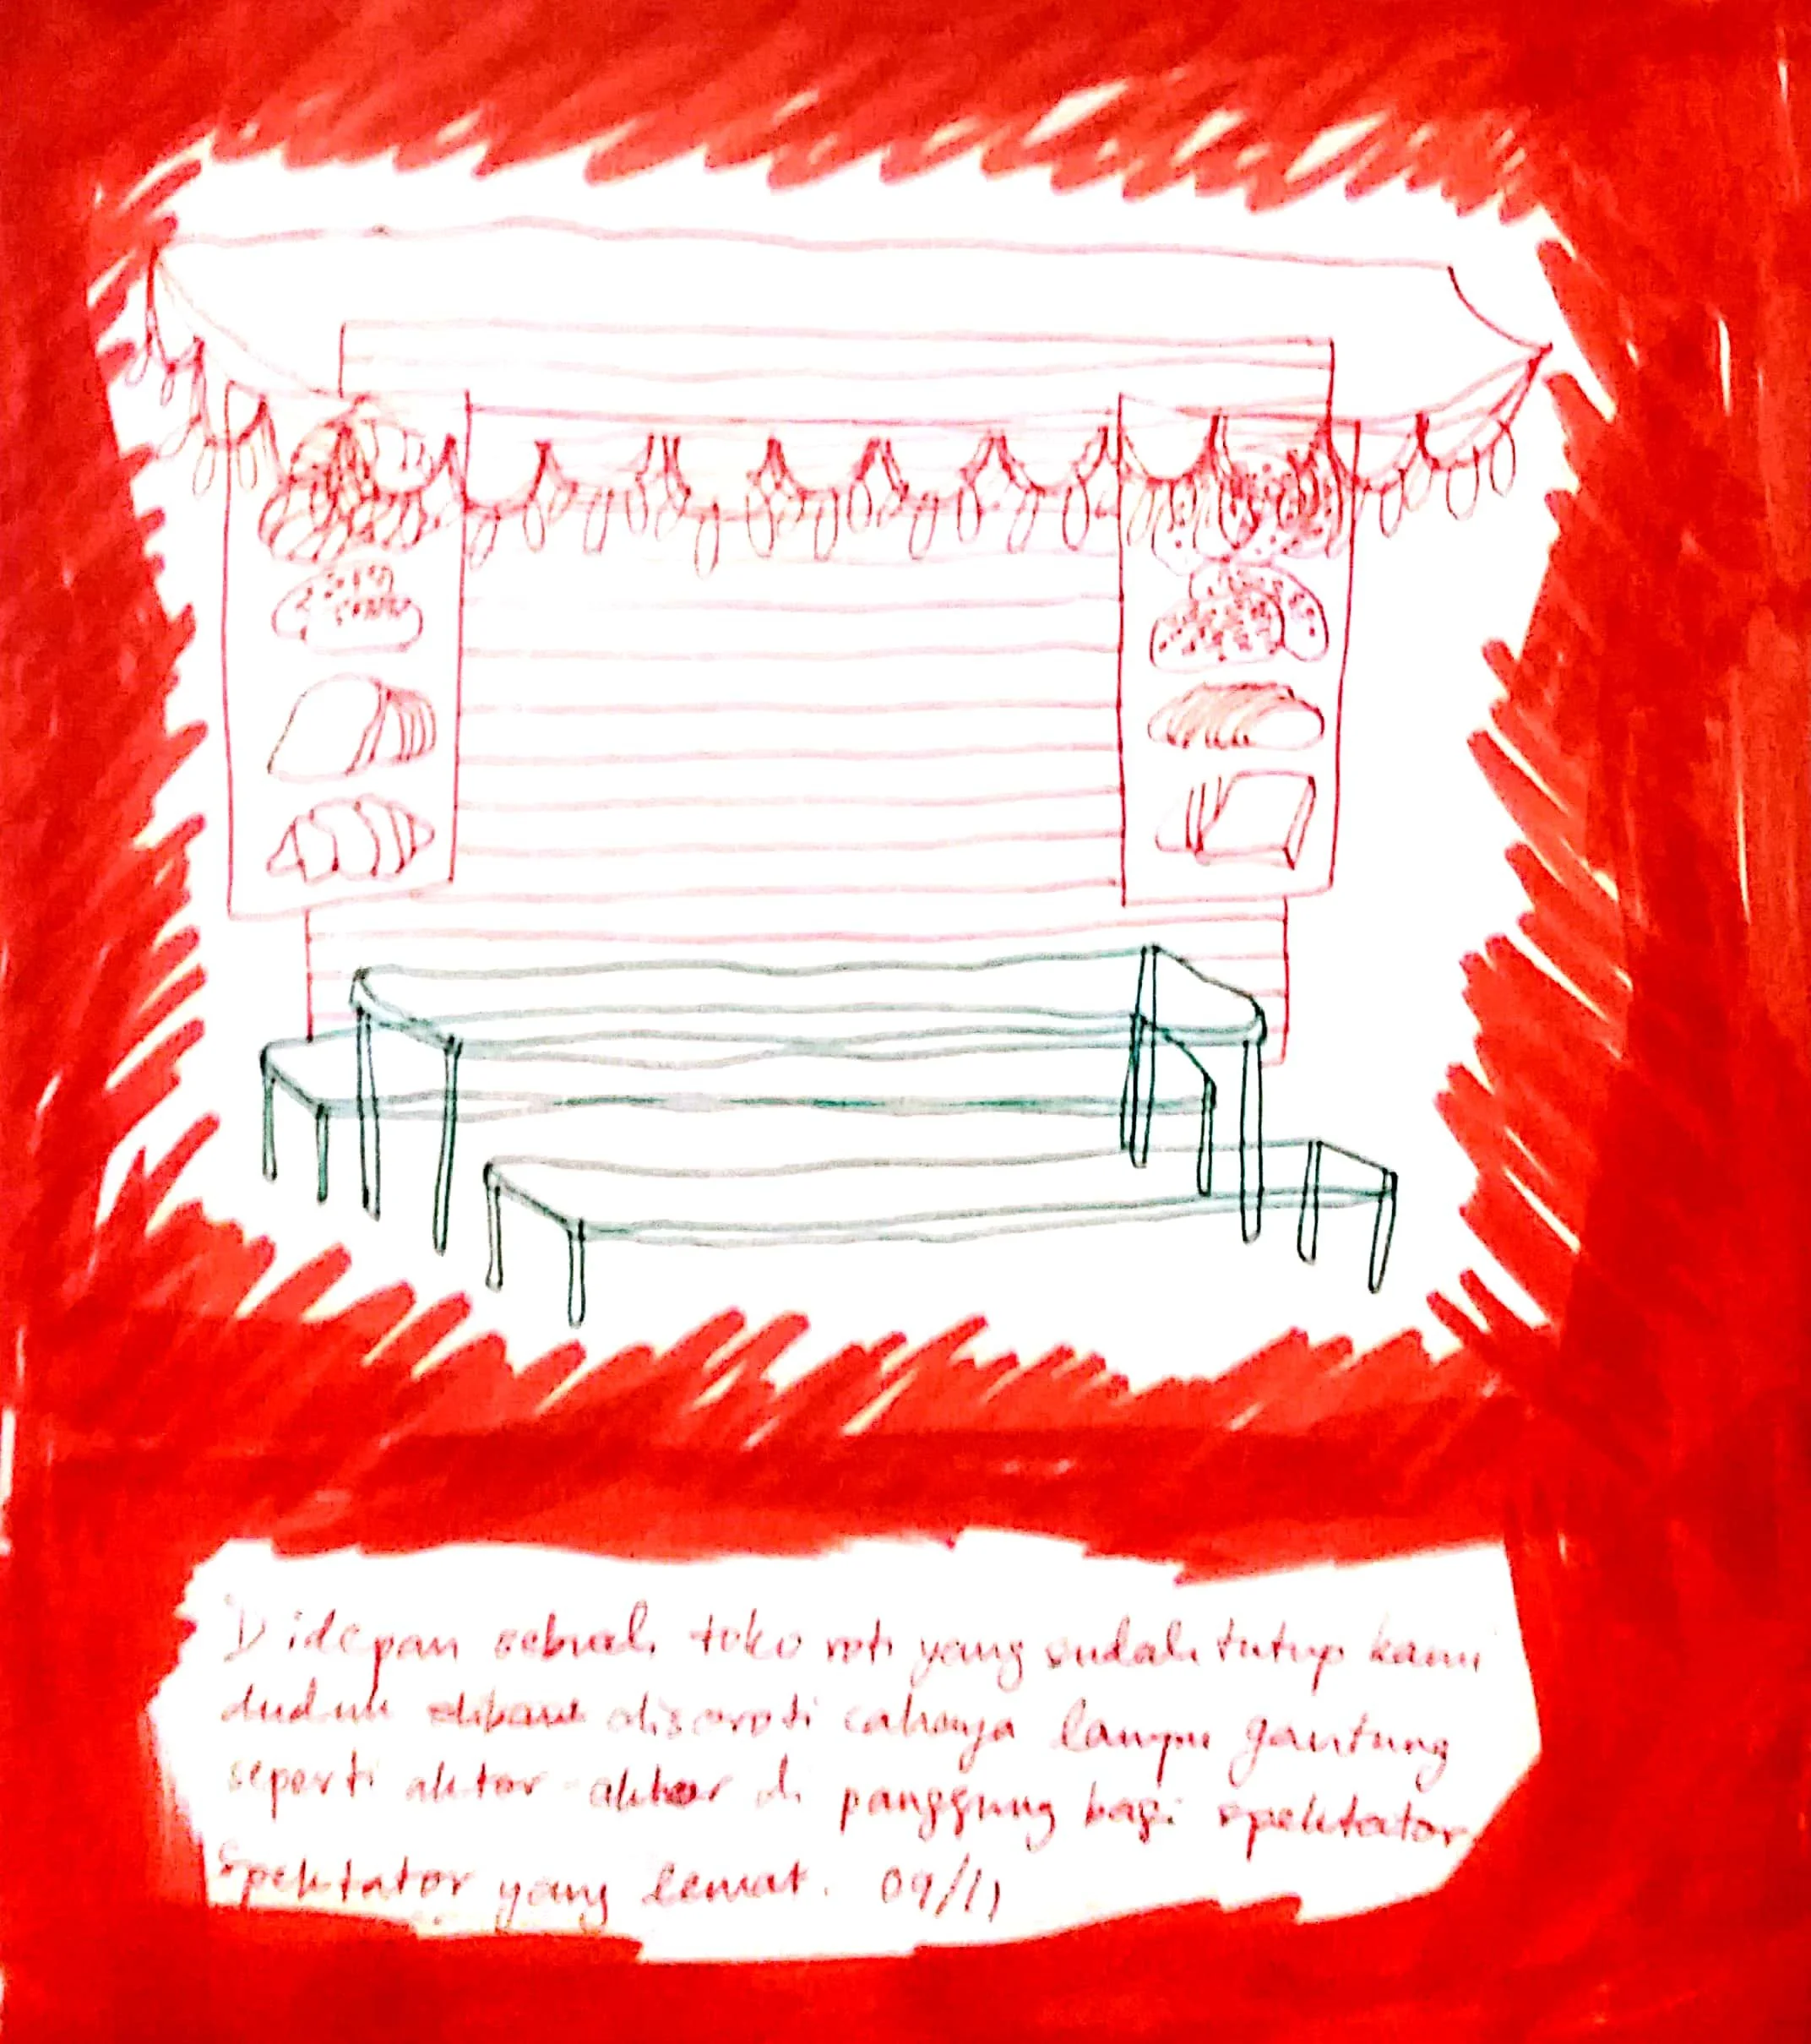 Didepan sebuah toko roti yang sudah tutup kami
duduk disoroti cahaya lampu gantung
seperti aktor-aktor di panggung bagi spektator
spektator yang lewat. 09/11